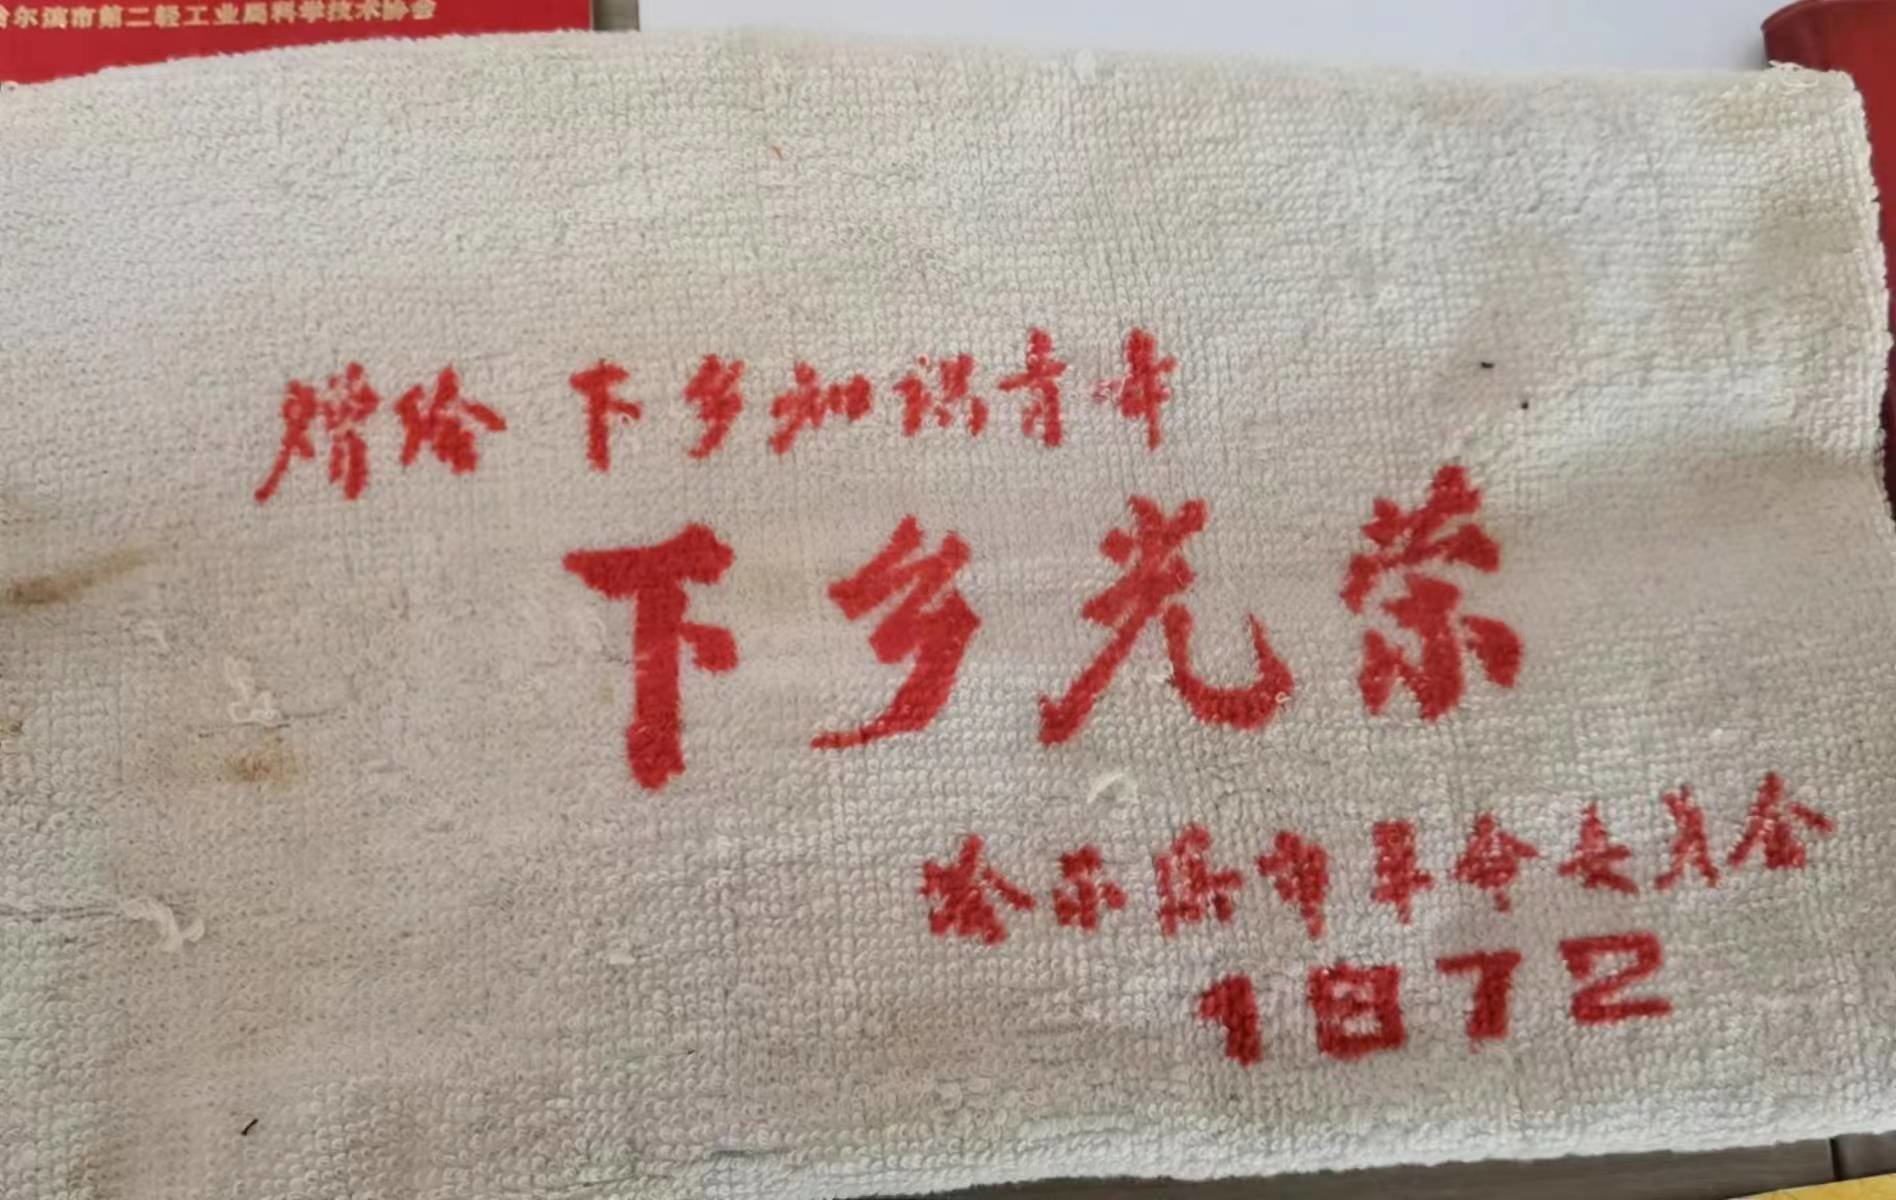 哈尔滨市第二轻工业局科学技术协会
赠给 下乡知识青年
下乡光荣
哈尔滨市革命委员会
1972